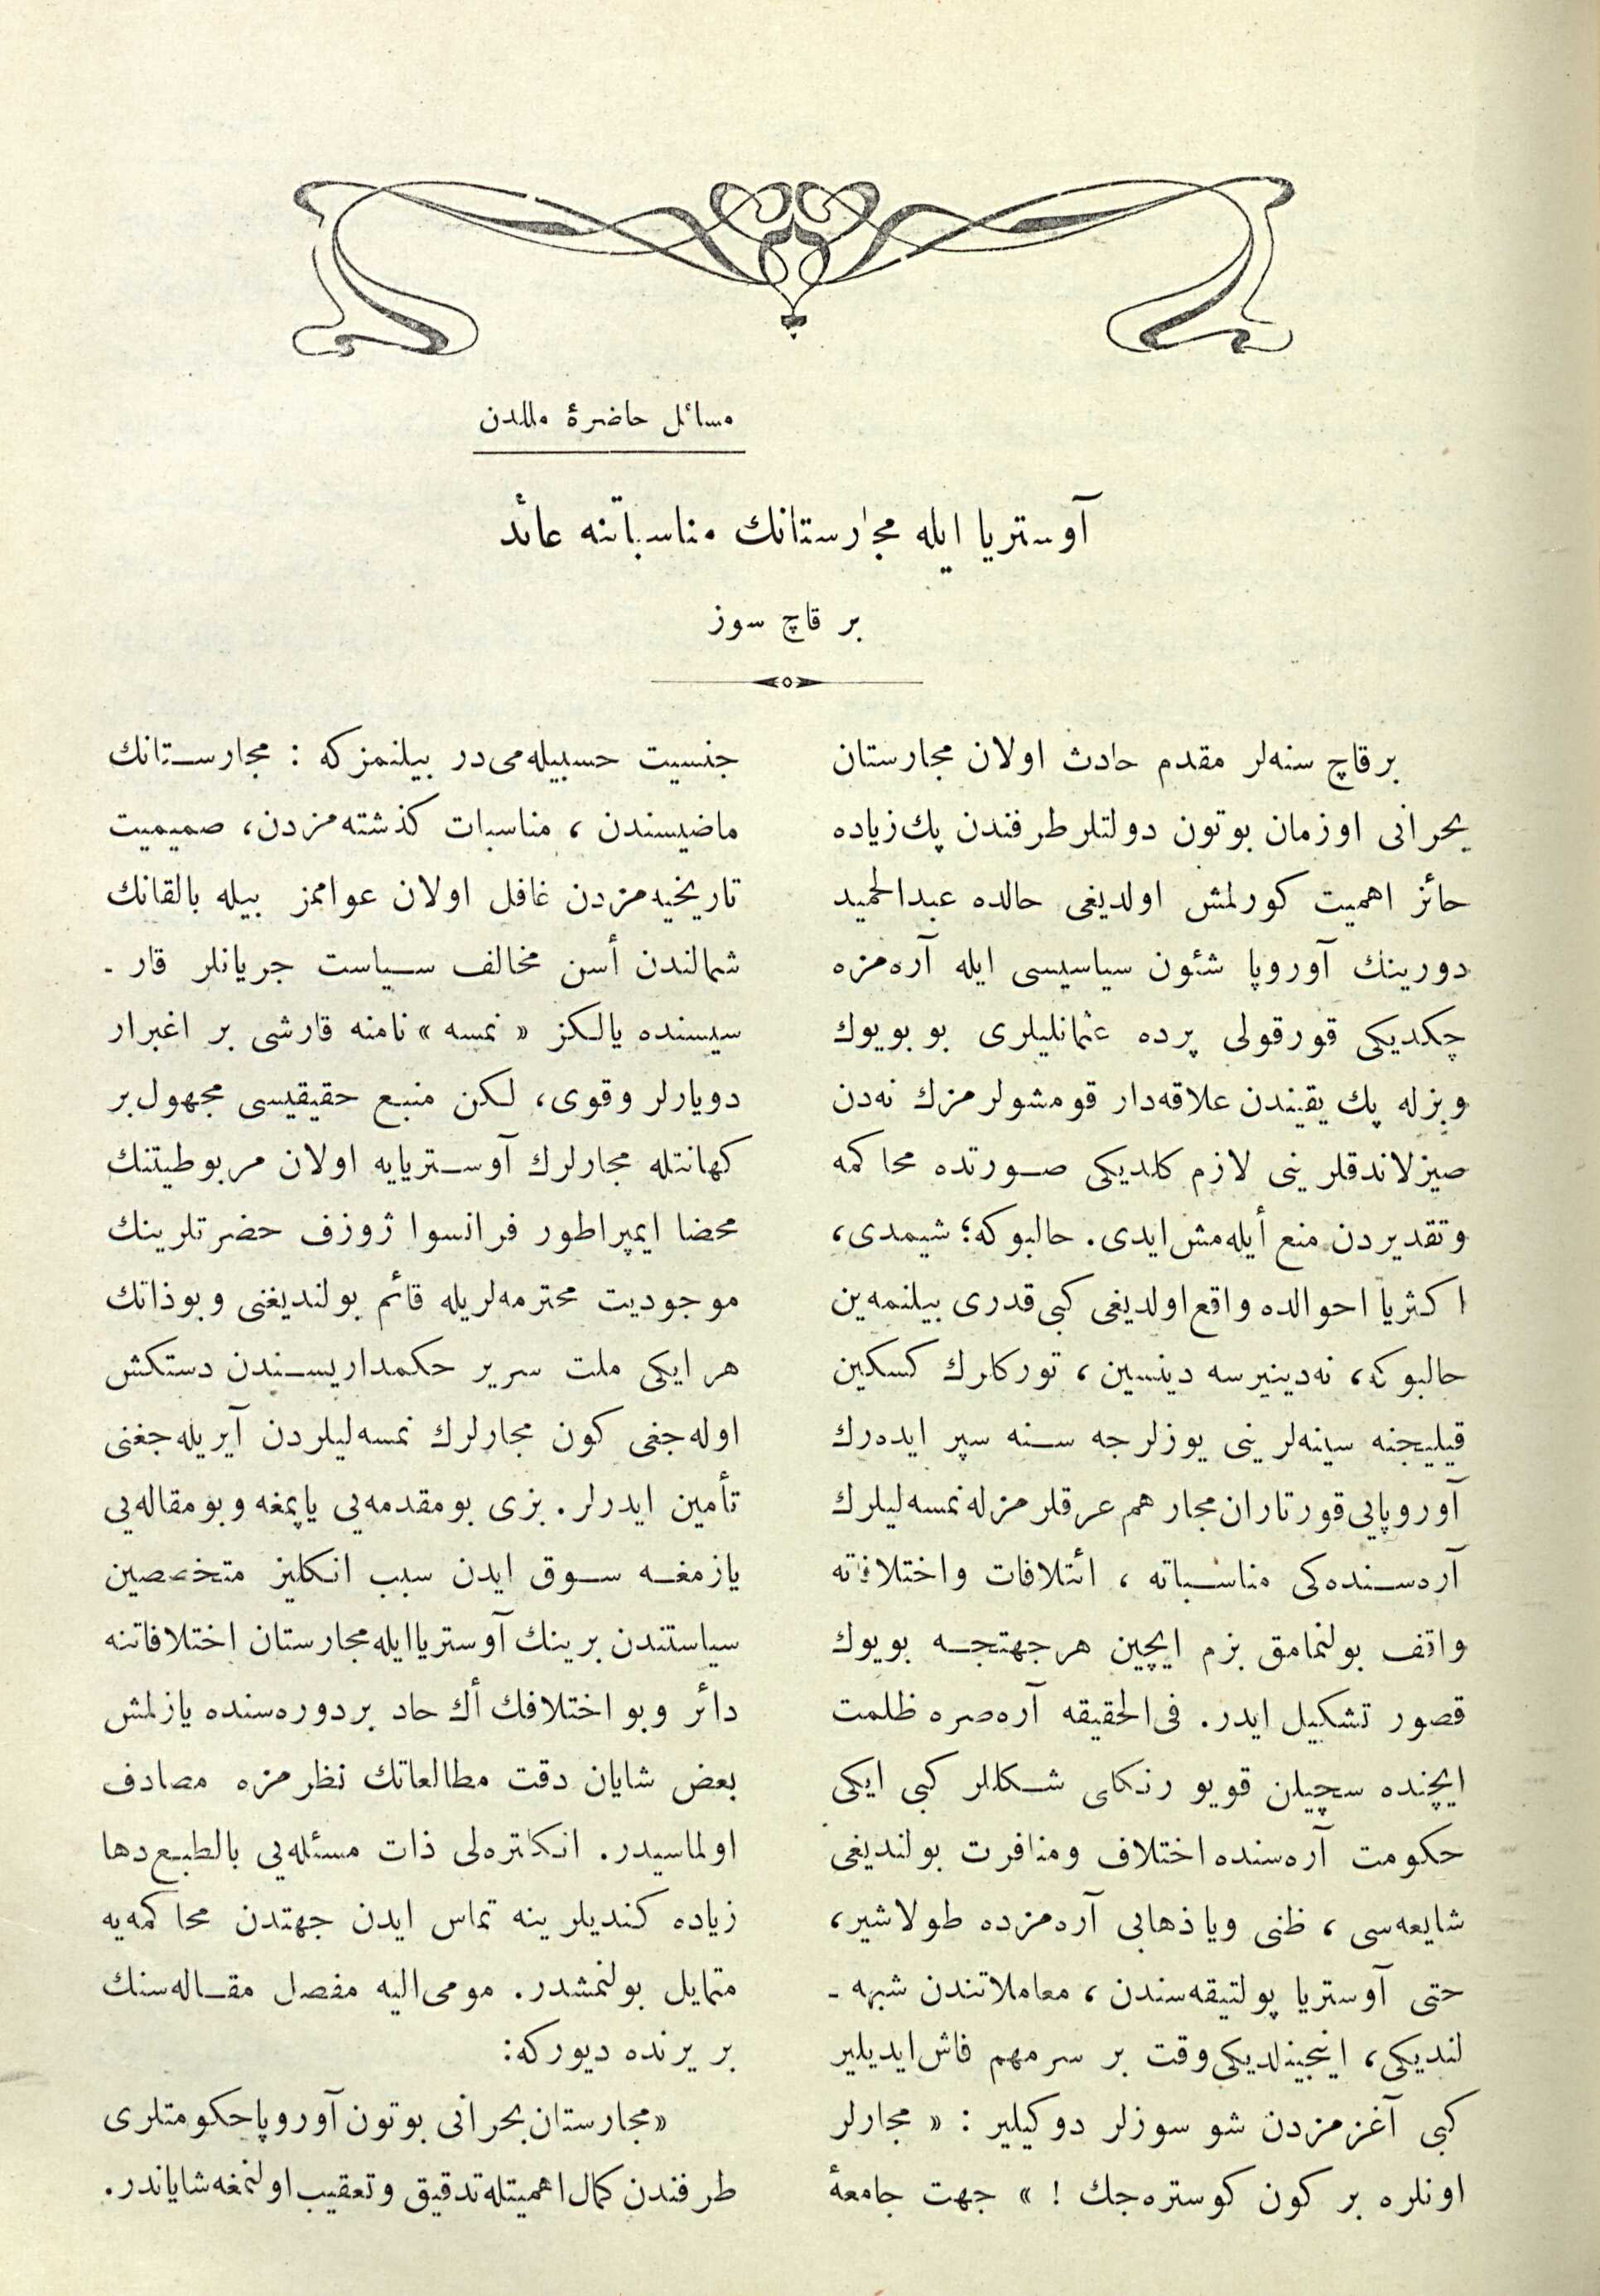 مسائل حاضرهٔ مللدن
آوستريا ايله مجارستانك مناسباتنه عائد
بر قاچ سوز
برقاچ سنه‌لر مقدم حادث اولان مجارستان
بحرانى اوزمان بوتون دولتلر طرفندن پك زياده
حائز اهميت كورلمش اولديغى حالده عبدالحميد
دورينك آوروپا شئون سياسيسى ايله آره‌مزه
چكديكى قورقولى پرده عثمانليلرى بو بويوك
وبزله پك يقيندن علاقه‌دار قومشولرمزك نه‌دن
صيزلاندقلرينى لازم كلديكى صورتده محاكمه
وتقديردن منع أيله‌مش ايدى. حالبوكه؛ شيمدى،
اكثريا احوالده واقع اولديغى كبى قدرى بيلنمه‌ين
حالبوكه، نه‌دينيرسه دينسين، توركلرك كسكين
قيليجنه سينه‌لرينى يوزلرجه سنه سپر ايده‌رك
آوروپايى قورتاران مجار هم عرقلرمزله نمسه‌ليلرك
آره‌سنده‌كى مناسباته ، ائتلافات واختلافاته
واقف بولنمامق بزم ايچين هرجهتجه بويوك
قصور تشكيل ايدر. فى‌الحقيقه آره‌صره ظلمت
ايچنده سچيلن قويو رنكلى شكللر كبى ايكى
حكومت آره‌سنده اختلاف ومنافرت بولنديغى
شايعه‌سى ، ظنى وياذهابى آره‌مزده طولاشير،
حتى آوستريا پولتيقه‌سندن ، معاملاتندن شبهه ـ
لنديكى، اينجينلديكى وقت بر سر مهم فاش ايديلير
كبى آغزمزدن شو سوزلر دوكيلير : « مجارلر
اونلره بر كون كوستره‌جك ! » جهت جامعهٔ
جنسيت حسبيله‌مى‌در بيلنمزكه : مجارستانك
ماضيسندن ، مناسبات كذشته‌مزدن، صميميت
تاريخيه‌مزدن غافل اولان عواممز بيله بالقانك
شمالندن أسن مخالف سياست جريانلر قار ـ
سيسنده يالكز « نمسه » نامنه قارشى بر اغبرار
دويارلر وقوى، لكن منبع حقيقيسى مجهول بر
كهانتله مجارلرك آوستريايه اولان مربوطيتنك
محضا ايمپراطور فرانسوا ژوزف حضرتلرينك
موجوديت محترمه‌لريله قائم بولنديغنى وبوذاتك
هر ايكى ملت سرير حكمداريسندن دستكش
اوله‌جغى كون مجارلرك نمسه‌ليلردن آيريله‌جغنى
تأمين ايدرلر. بزى بومقدمه‌يى ياپمغه وبومقاله‌يى
يازمغه سوق ايدن سبب انكليز متخصصين
سياستندن برينك آوستريا ايله مجارستان اختلافاتنه
دائر وبو اختلافك أك حاد بردوره‌سنده يازلمش
بعض شايان دقت مطالعاتك نظرمزه مصادف
اولماسيدر. انكلتره‌لى ذات مسئله‌يى بالطبع دها
زياده كنديلرينه تماس ايدن جهتدن محاكمه‌يه
متمايل بولنمشدر. مومى‌اليه مفصل مقاله‌سنك
بر يرنده ديوركه:
«مجارستان بحرانى بوتون آوروپا حكومتلرى
طرفندن كمال اهميتله تدقيق وتعقيب اولنمغه شاياندر.